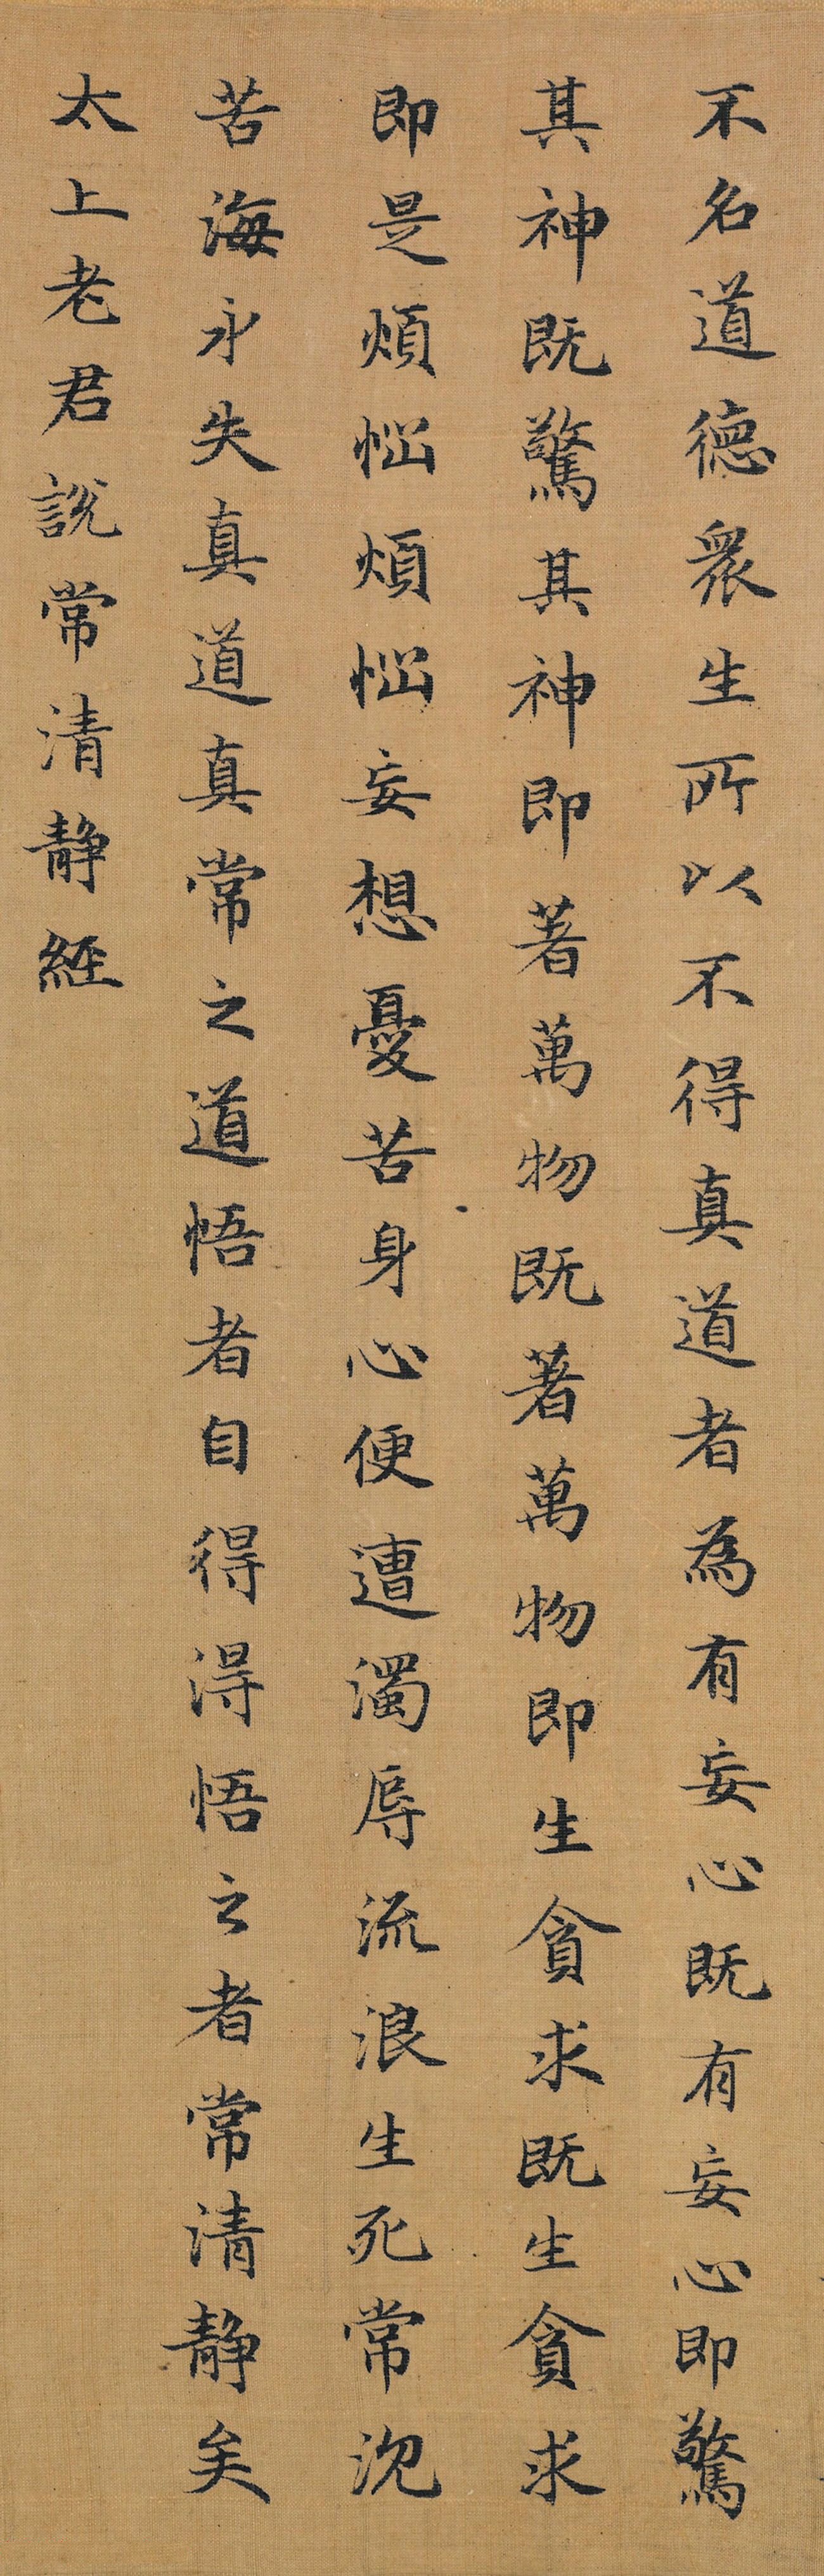 不名道德衆生所以不得真道者為有妄心既有妄心即驚
其神既驚其神即著萬物既著萬物即生貪求既生貪求
即是煩惱煩惱妄想憂苦身心便遭濁辱流浪生死常沉
苦海永失真道真常之道悟者自得得悟之者常清静矣
太上老君説常清静經